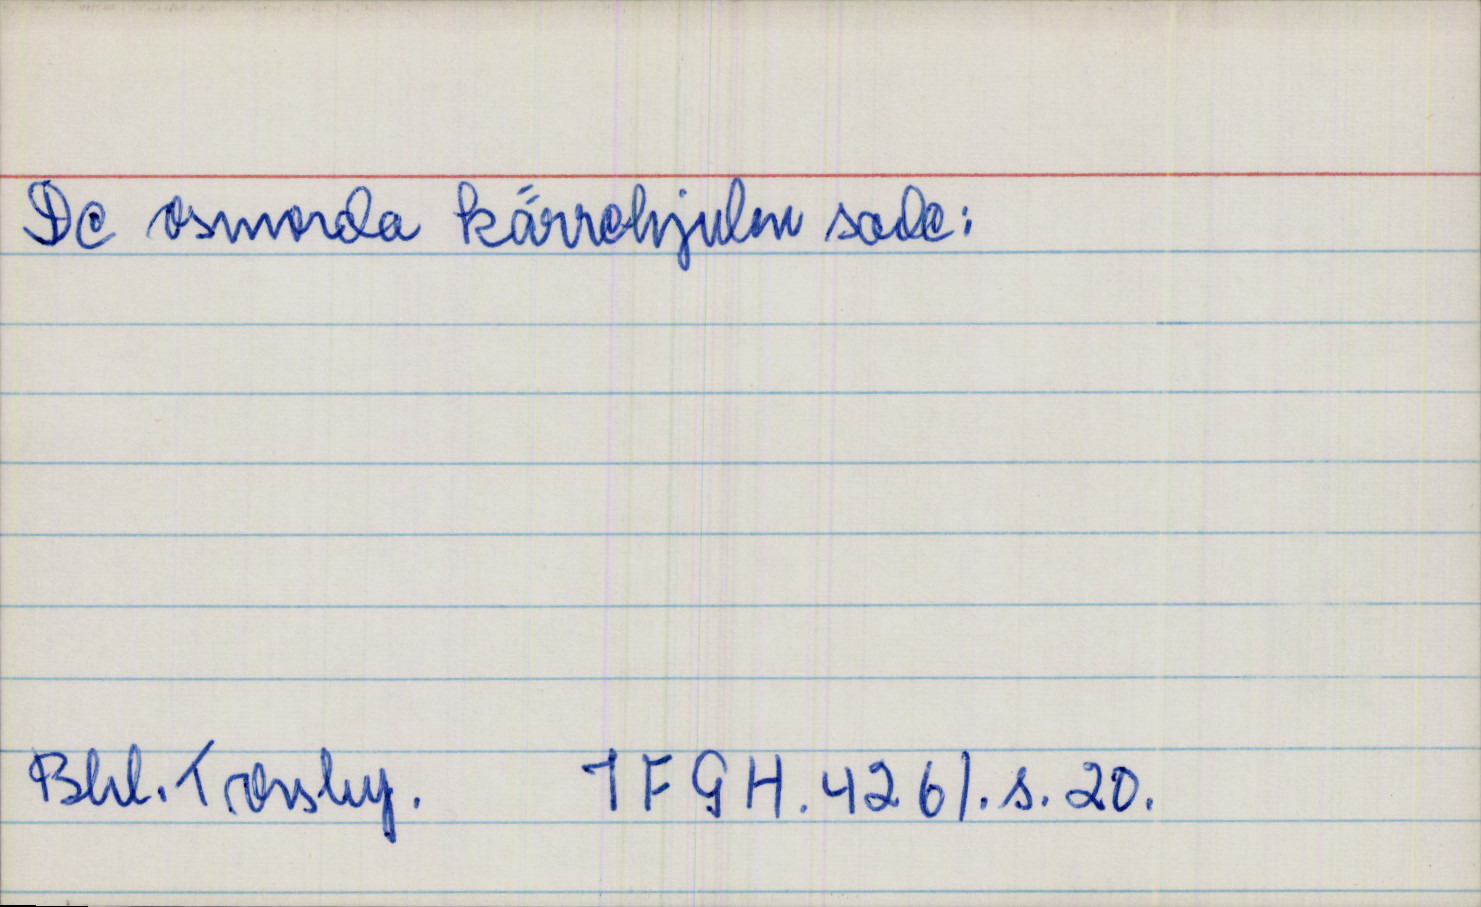 De osmorda kärrehjulen sade:
Bhl. Trossby. IFGH. 4261. s. 20.